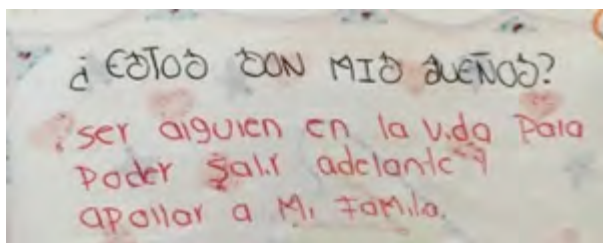 ¿ ESTOS SON MIS SUEÑOS?
ser alguien en la vida Para
Poder Salir adelante y
apollar a Mi Familia.